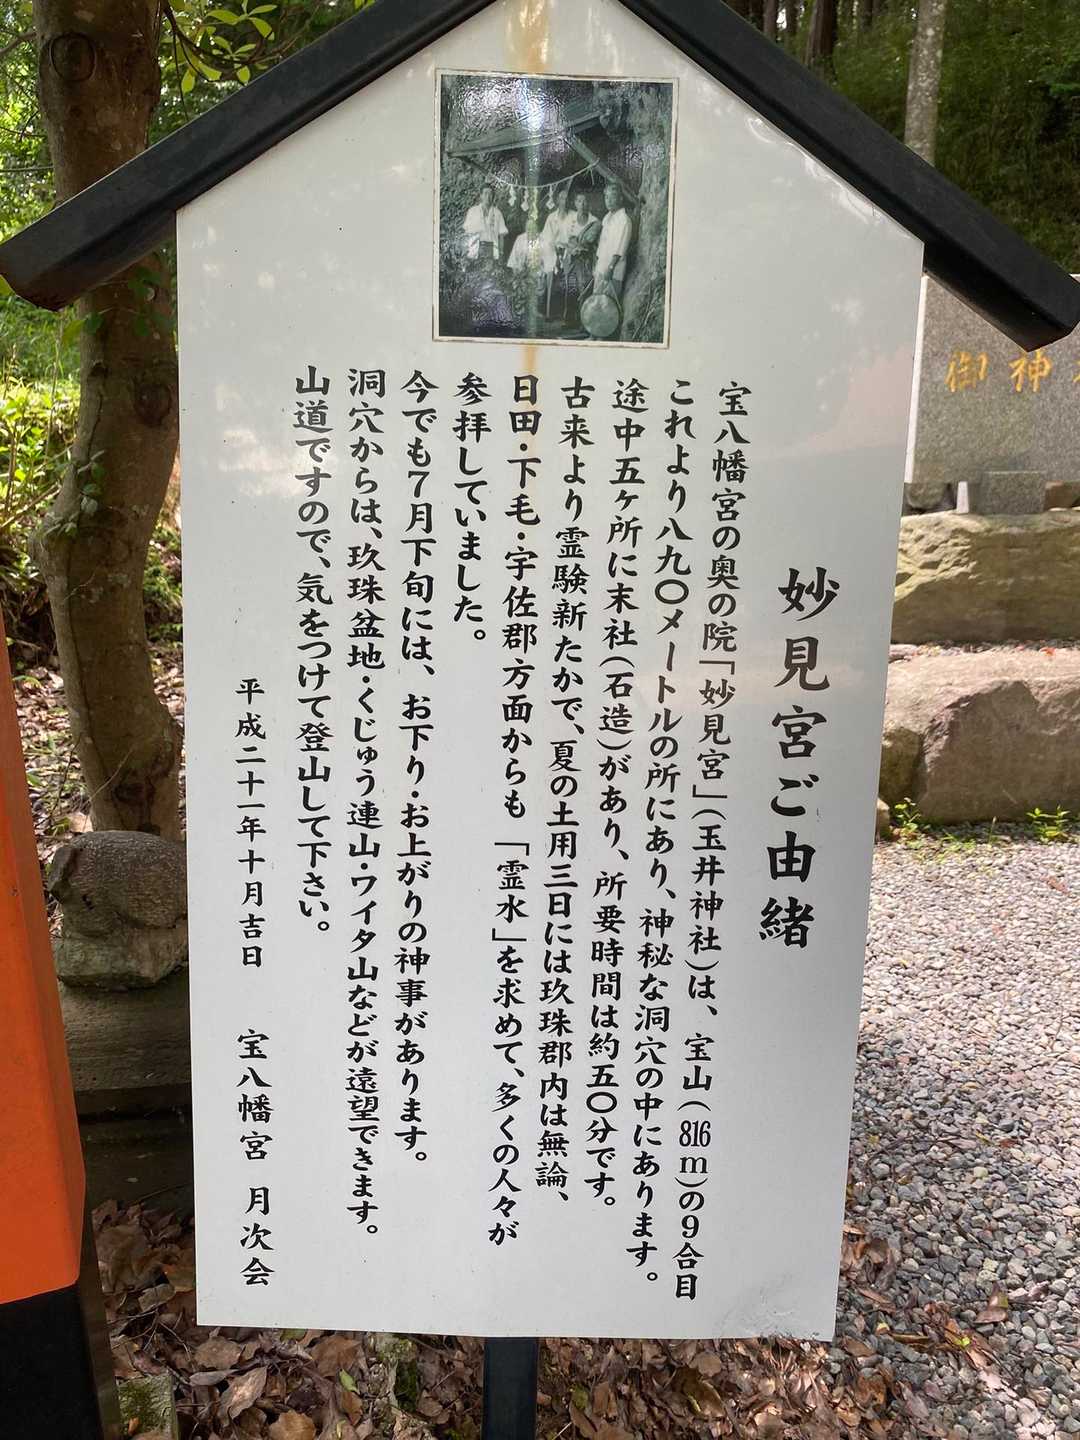 妙見宮ご由緒
宝八幡宮の奥の院「妙見宮」(玉井神社)は、宝山(816m)の9合目
これより八九〇メートルの所にあり、神秘な洞穴の中にあります。
途中五ヶ所に末社(石造)があり、所要時間は約五〇分です。
古来より霊験新たかで、夏の土用三日には玖珠郡内は無論、
日田・下毛・宇佐郡方面からも「霊水」を求めて、多くの人々が
参拝していました。
今でも7月下旬には、お下り・お上がりの神事があります。
洞穴からは、玖珠盆地・くじゅう連山・ワイタ山などが遠望できます。
山道ですので、気をつけて登山して下さい。
平成二十一年十月吉日 宝八幡宮 月次会
御神